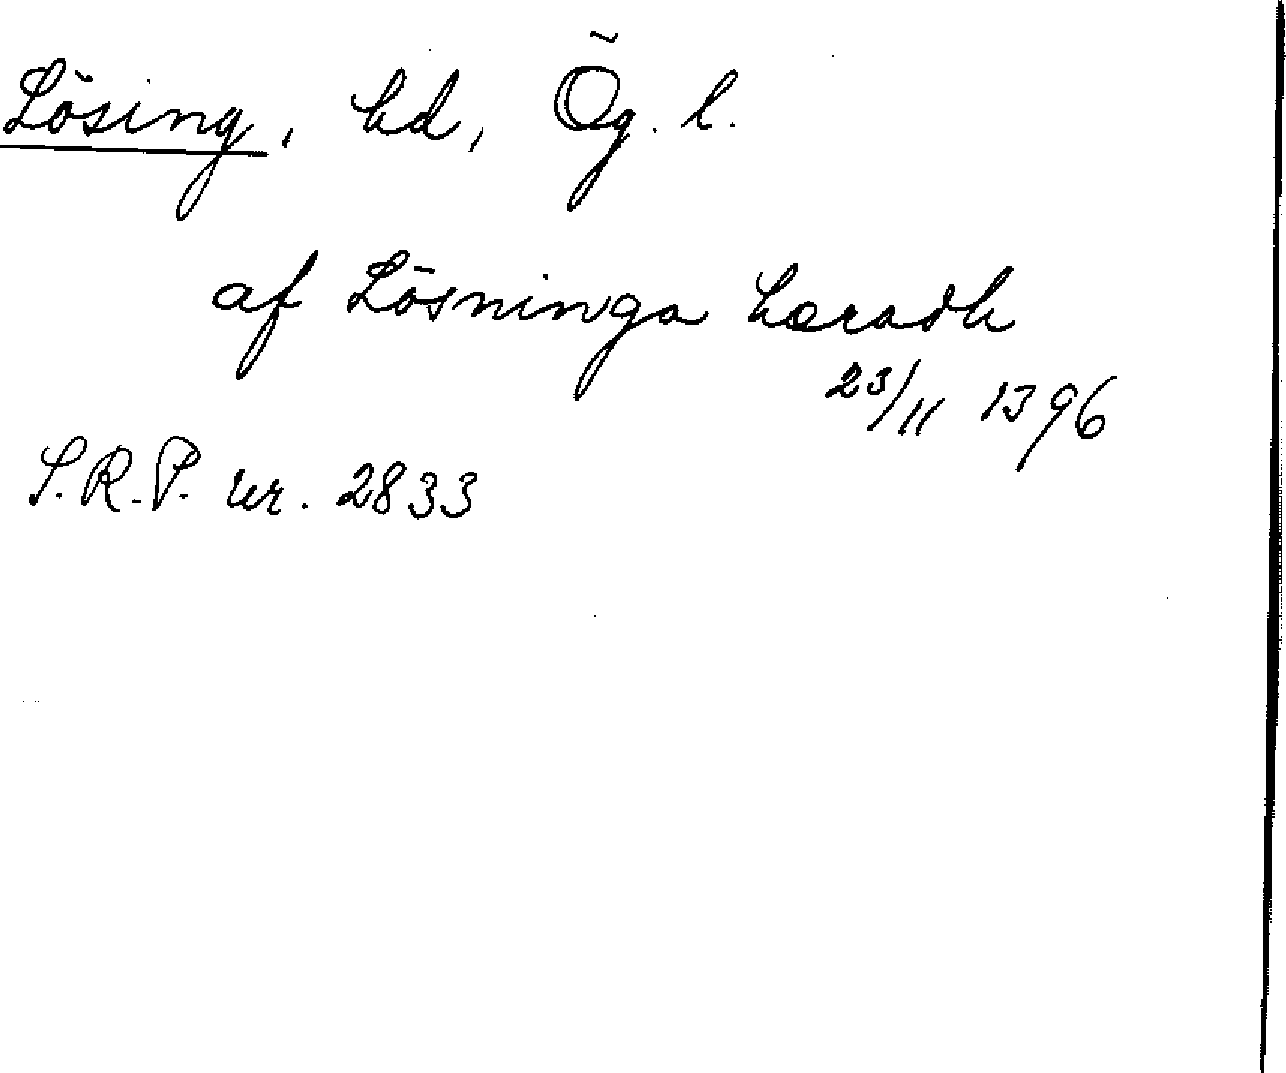 Lösing, hd, Ög. l.
af Lösninga hæradh
23/11 1396
S.R.P. nr. 2833